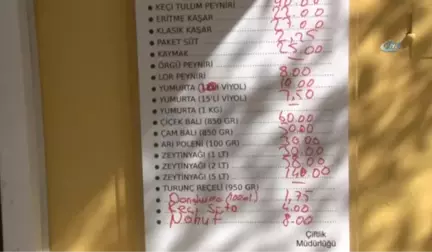 • KEÇİ TULUM PEYNİRİ
• ERİTME KAŞAR 22.00
• KLASİK KAŞAR 27.00
• PAKET SÜT 2.25
• KAYMAK 25.00
• ÖRGÜ PEYNİRİ
• LOR PEYNİRİ 8.00
• YUMURTA VİYOL) 10.00
• YUMURTA (15'Lİ VİYOL) 7.50
• YUMURTA (1 KG)
• ÇİÇEK BALI (850 GR) 60.00
• ÇAM BALI (850 GR) 50.00
• ARI POLENİ (100 GR) 30.00
• ZEYTİNYAĞI (1 LT) 30.00
• ZEYTİNYAĞI (2 LT) 58.00
• ZEYTİNYAĞI (5 LT) 140.00
• TURUNÇ REÇELİ (950 GR)
• Dondurma 1.75
• Keçi Sütü 4.00
• Nohut 8.00
Çiftlik
Müdürlüğü